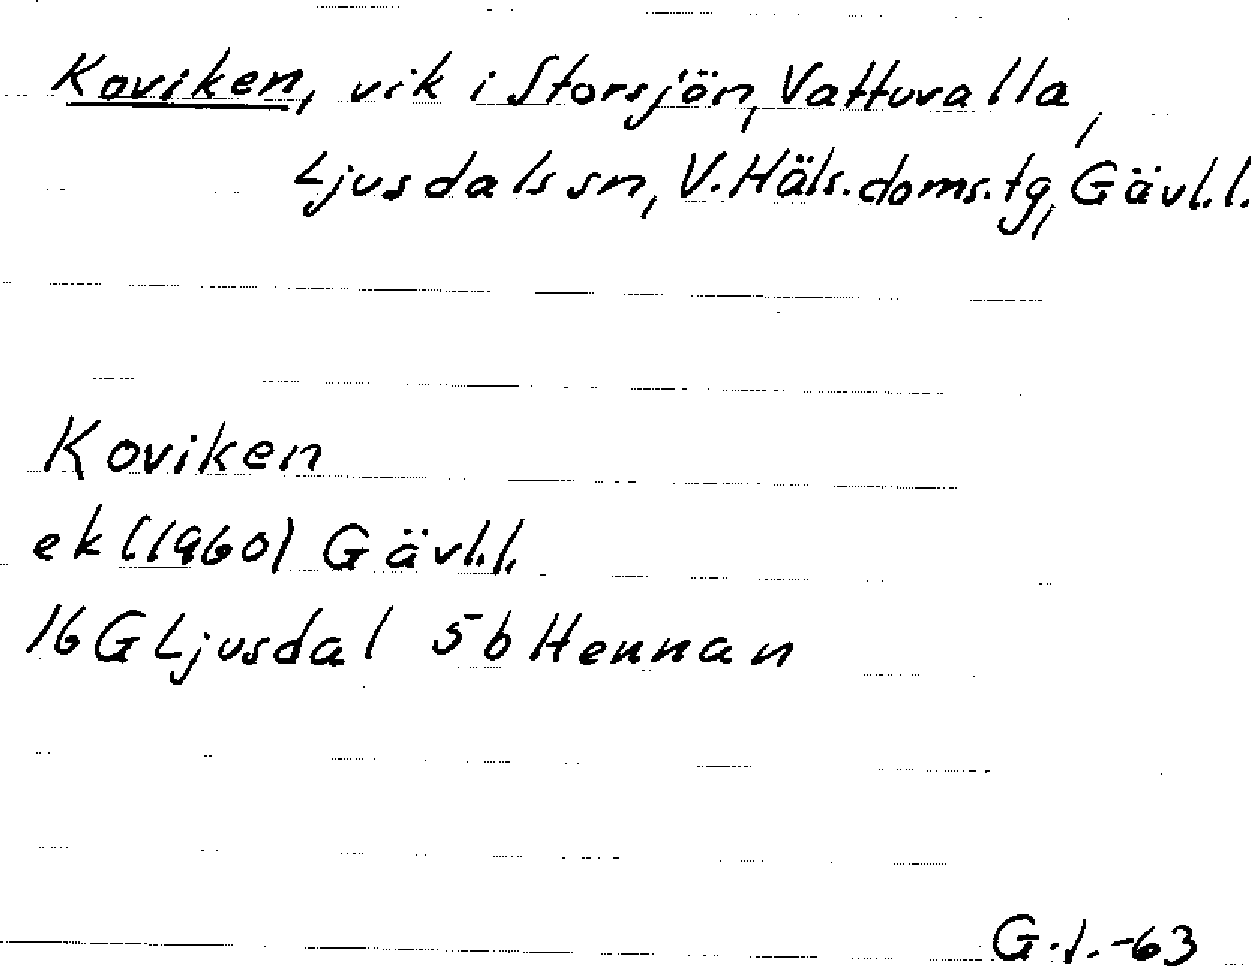 Koviken, vik i Storsjön, Vattuvalla,
Ljusdals sn, V. Häls. doms. tg, Gävl.l.
Koviken
ek (1960) Gävl.l.
16 G Ljusdal 5 b Hennan
G.l. -63